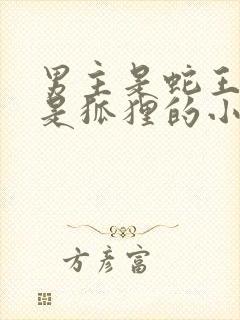 男主是蛇王
是狐狸的小
方彦富